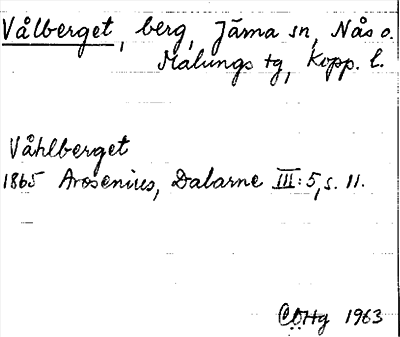 Vålberget, berg, Järna sn, Nås o.
Malungs tg, Kopp. l.
Våhlberget
1865 Arosenius, Dalarne III:5, s. 11.
CÖHg 1963